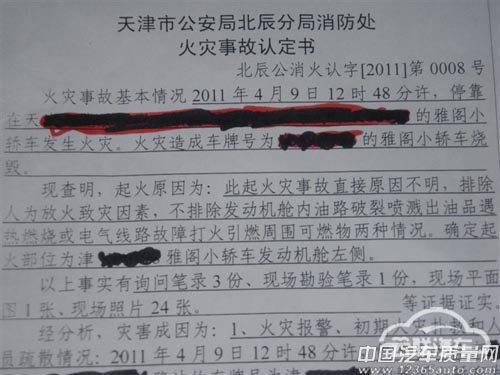 天津市公安局北辰分局消防处
火灾事故认定书
北辰公消火认字[2011]第 0008 号
火灾事故基本情况 2011 年 4 月 9 日 12 时 48 分许，停靠
在天 的雅阁小
轿车发生火灾。火灾造成车牌号为 的雅阁小轿车烧
毁。
现查明，起火原因为：此起火灾事故直接原因不明，排除
人为放火致灾因素，不排除发动机舱内油路破裂喷溅出油品遇
热燃烧或电气线路故障打火引燃周围可燃物两种情况。确定起
火部位为津 雅阁小轿车发动机舱左侧。
以上事实有询问笔录 3 份、现场勘验笔录 1 份，现场平面
图 1 张、现场照片 24 张。 等证据证实。
经分析，灾害成因为：1、火灾报警、初期火灾扑救和人
员疏散情况：2011 年 4 月 9 日 12 时 48 分许
中国汽车质量网
www.12365auto.com